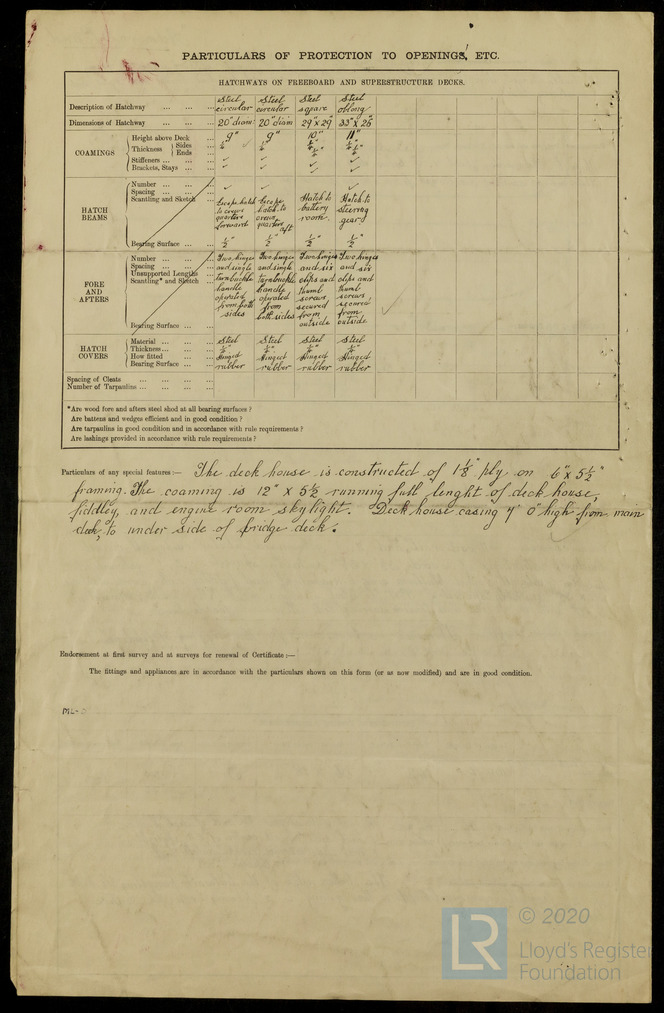 PARTICULARS OF PROTECTION TO OPENINGS, ETC.
HATCHWAYS ON FREEBOARD AND SUPERSTRUCTURE DECKS.
Description of Hatchway ... ... ... Steel circular Steel circular Steel square Steel oblong
Dimensions of Hatchway ... ... ... 20" diam: 20" diam 29" x 29" 33" x 26"
COAMINGS
Height above Deck ... 9" 9" 10" 11"
Thickness { Sides ...
Ends ...
Stiffeners ... ... ... ✓ ✓ ✓ ✓
Brackets, Stays ... ... ✓ ✓ ✓ ✓
HATCH BEAMS
Number ... ... ... ✓ ✓ ✓
Spacing ... ... ...
Scantling and Sketch ... Escape hatch to crews quarters forward Escape hatch to crews quarters aft Hatch to battery room. Hatch to steering gear
Bearing Surface ... ... ½" ½" ½" ½"
FORE AND AFTERS
Number ... ... ... Two hinges and single turnbuckle handle operated from both sides Two hinges and single turnbuckle handle oprated from both sides Two hinges and six clips and thumb screws secured from outside Two hinges and six clips and thumb screws secured from outside
Spacing ... ... ...
Unsupported Lengths ...
Scantling* and Sketch ...
Bearing Surface ... ...
HATCH COVERS
Material ... ... ... Steel Steel Steel Steel
Thickness ... ... ...
How fitted ... ... Hinged Hinged Hinged Hinged
Bearing Surface ... ... rubber rubber rubber rubber
Spacing of Cleats ... ... ... ...
Number of Tarpaulins ... ... ... ...
*Are wood fore and afters steel shod at all bearing surfaces ?
Are battens and wedges efficient and in good condition ?
Are tarpaulins in good condition and in accordance with rule requirements ?
Are lashings provided in accordance with rule requirements ?
Particulars of any special features :— The deck house is constructed of 1⅛" ply on 6" x 5½"
framing. The coaming is 12" x 5½ running full lenght of deck house,
fiddley, and engine room skylight. Deck house casing 7' 0" high from main
deck, to under side of bridge deck.
Endorsement at first survey and at surveys for renewal of Certificate :—
The fittings and appliances are in accordance with the particulars shown on this form (or as now modified) and are in good condition.
LR
© 2020
Lloyd's Register
Foundation